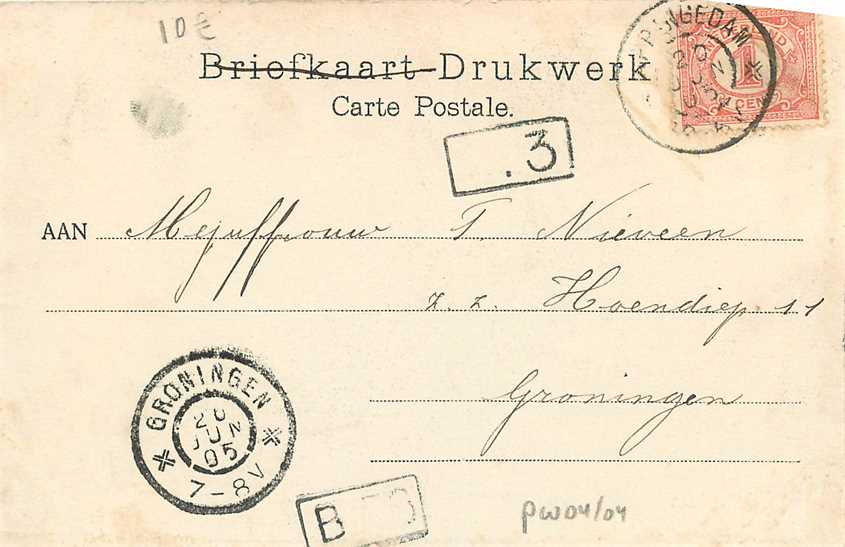 10€
Briefkaart-Drukwerk
Carte Postale.
.3
AAN Mejuffrouw T. Nieveen
z. z. Hoendiep 11
Groningen
GRONINGEN
20
JUN
05
7-8V
B
PW04/04